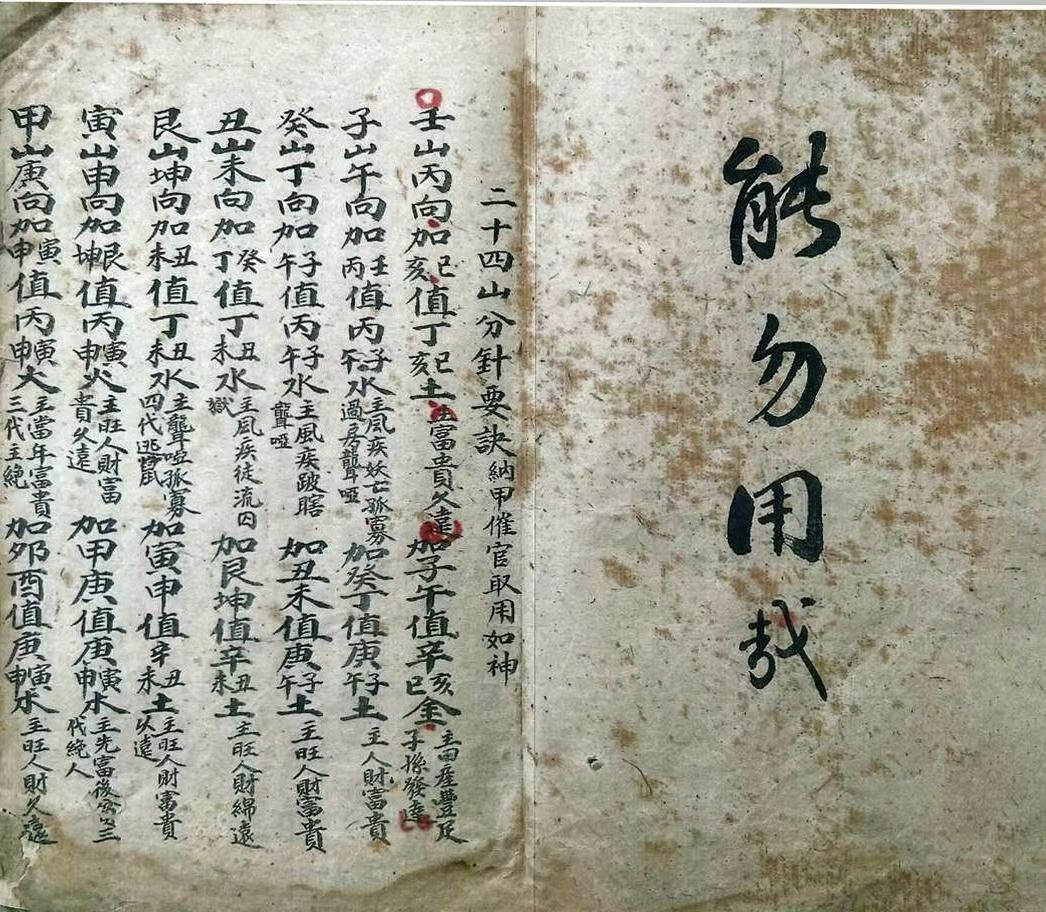 能勿用哉
二十四山分針要訣納甲催官取用如神
壬山丙向加巳亥值丁巳亥土主富貴久遠加子午值辛亥巳金主田產豐足子孫發達
子山午向加壬丙值丙子午水主風疾妖亡孤寡過房聾啞加癸丁值庚子午土主人財富貴
癸山丁向加子午值丙子午水主風疾跛瞎聾啞加丑未值庚子午土主旺人財富貴
丑山未向加癸丁值丁丑未水主風疾徒流囚獄加艮坤值辛丑未土主旺人財綿遠
艮山坤向加丑未值丁丑未水主聾啞孤寡四代逃竄加寅申值辛丑未土主旺人財富貴久遠
寅山申向加艮坤值丙寅申火主旺人財富貴久遠加甲庚值庚寅申木主先富後三代絕人
甲山庚向加寅申值丙寅申火主當年富貴三代主絕加卯酉值庚寅申木主旺人財久遠